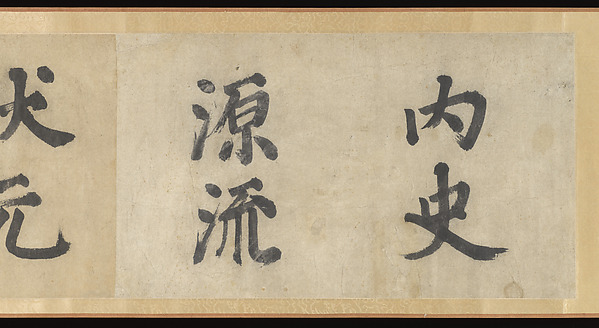 内史
源流
元